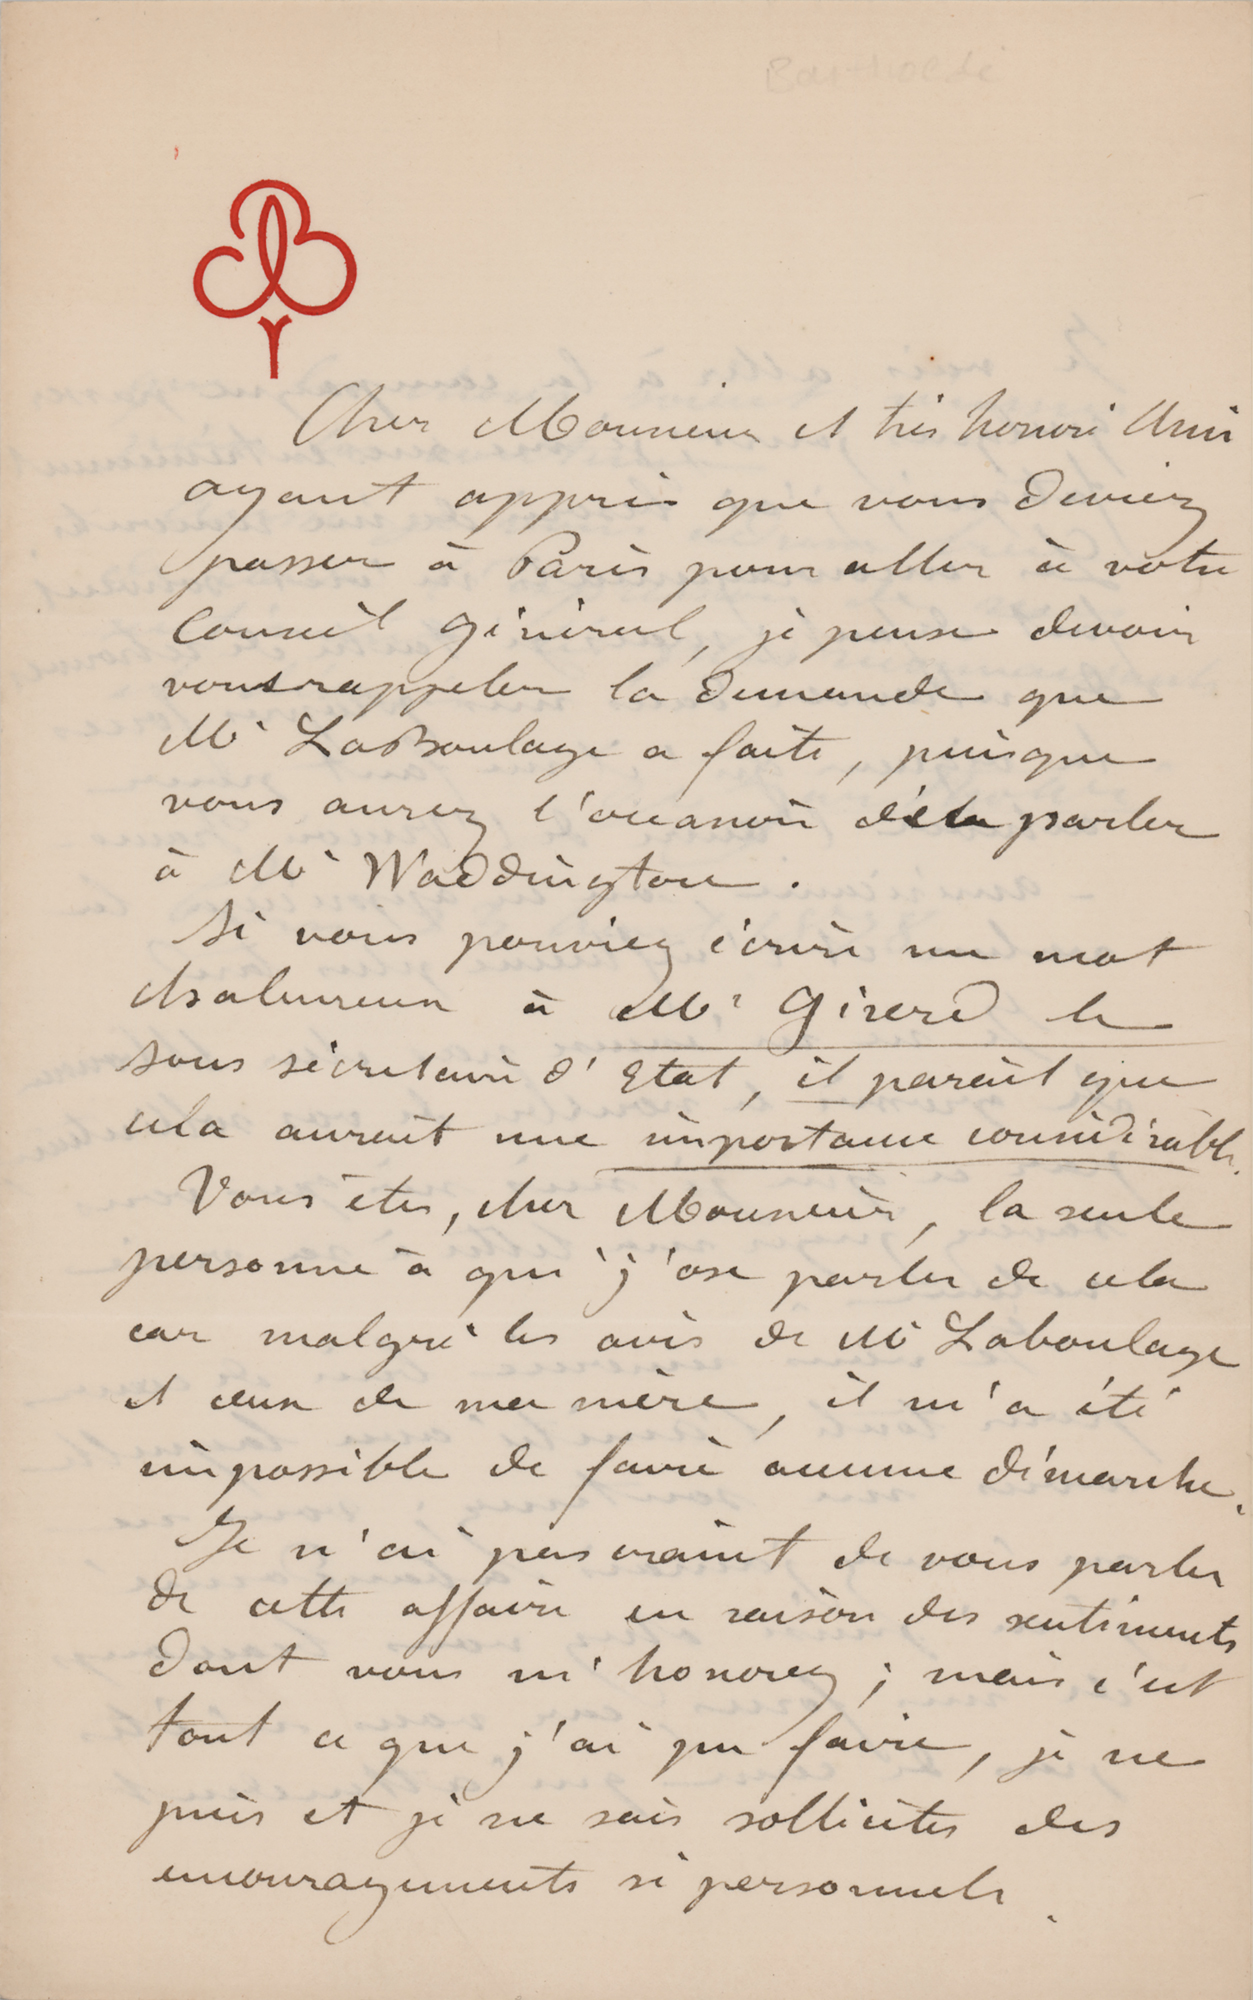 Bartholdi
Cher Monsieur et très honoré Ami
ayant appris que vous deviez
passer à Paris pour aller à votre
Conseil général, je pense devoir
vous rappeler la demande que
Mr LaBoulaye a faite, puisque
vous aurez l'occasion de la parler
à Mr Waddington.
Si vous pouviez écrire un mot
chaleureux à Mr Girerd le
sous sécretaire d'Etat, il parait que
cela aurait une importance considérable.
Vous êtes, cher Monsieur, la seule
personne à qui j'ose parler de cela
car malgré les avis de Mr Laboulaye
et ceux de ma mère, il m'a été
impossible de faire aucune démarche.
Je n'ai pas craint de vous parler
de cette affaire en raison des sentiments
dont vous m'honorez ; mais c'est
tout ce que j'ai pu faire, je ne
puis et je ne sais solliciter des
encouragements si personnels.